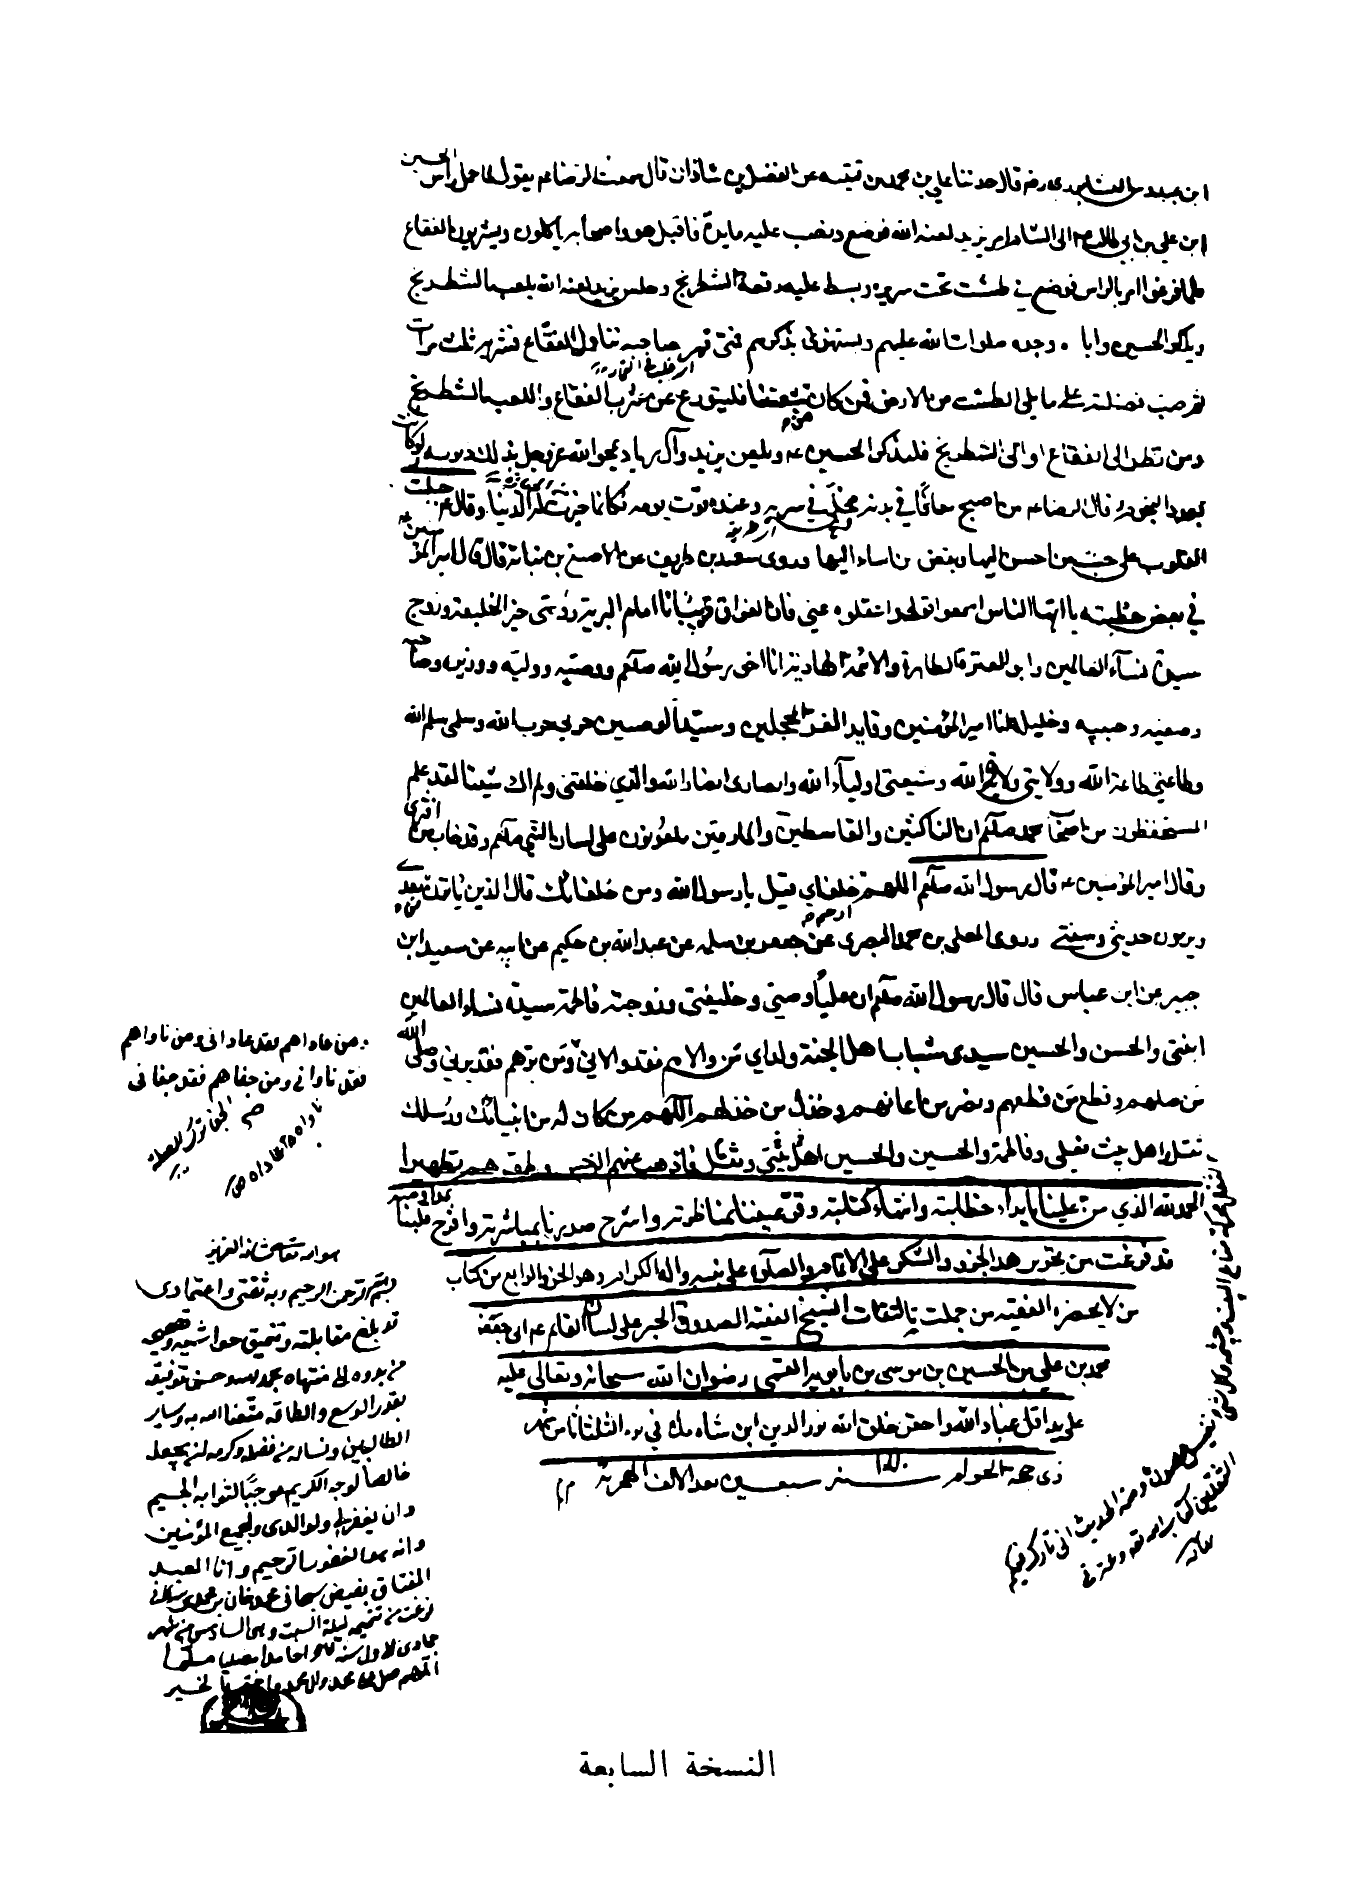 ابن عبدوس النيسابوري رضه قال حدثنا علي بن محمد بن قتيبه عن الفضل بن شاذان قال سمعت الرضا عم يقول لما حمل راس الحسين
ابن علي بن ابي طالب عم الى الشام امر يزيد لعنه الله فوضع ونصب عليه مايدة فاقبل هو واصحابه ياكلون ويشربون الفقاع
فلما فرغوا امر بالراس فوضع في طشت تحت سريره وبسط عليه رقعة الشطرنج وجلس يزيد لعنه الله يلعب بالشطرنج
ويذكر الحسين واباه وجده صلوات الله عليهم ويستهزئ بذكرهم فمتى قمر صاحبه تناول الفقاع فشربه ثلث مرات
ثم صب فضلته على ما يلي الطشت من الارض فمن كان من شيعتنا فليتورع عن شرب الفقاع واللعب بالشطرنج
ومن نظر الى الفقاع او الى الشطرنج فليذكر الحسين عم ويلعن يزيد وآل زياد يمحو الله عز وجل بذلك ذنوبه ولو كانت
بعدد النجوم وقال الرضا عم من اصبح معافا في بدنه مخلى في سربه وعنده قوت يومه فكانما خيرت له الدنيا وقال عم جبلت
القلوب على حب من احسن اليها وبغض من اساء اليها وروى سعد بن طريف عن الاصبغ بن نباته قال قال امير المؤمنين عم
في بعض خطبته يا ايها الناس اسمعوا قولي واعقلوه عني فان الفراق قريب انا امام البرية ووصي خير الخليقة وزوج
سيدة نسآء العالمين وابو العترة الطاهرة والائمة الهادية انا اخى رسول الله صلعم ووصيه ووليه ووزيره وصاحبه
وصفيه وحبيبه وخليله انا امير المؤمنين وقايد الغر المحجلين وسيد الوصيين حربي حرب الله وسلمي سلم الله
وطاعتي طاعة الله وولايتي ولاية الله وشيعتي اوليآء الله وانصارى انصار الله والذي خلقني ولم اك شيئا لقد علم
المستحفظون من اصحاب محمد صلعم ان الناكثين والقاسطين والمارقين ملعونون على لسان النبي صلعم وقد خاب من افترى
وقال امير المؤمنين عم قال رسول الله صلعم اللهم ارحم خلفاي قيل يا رسول الله ومن خلفائك قال الذين ياتون من بعدي
ويروون حديثي وسنتي وروى المعلى بن محمد البصري عن جعفر بن سلمه عن عبد الله بن حكيم عن ابيه عن سعيد ابن
جبير عن ابن عباس قال قال رسول الله صلعم ان عليا وصيي وخليفتي وزوجته فاطمة سيدة نساء العالمين
ابنتي والحسن والحسين سيدى شباب اهل الجنة ولداي من والاهم فقد والاني ومن برهم فقد برني وصلى الله
من وصلهم وقطع من قطعهم ونصر من اعانهم وخذل من خذلهم اللهم من كان له من انبيائك ورسلك
ثقل واهل بيت فعلي وفاطمة والحسن والحسين اهل بيتي وثقلي فاذهب عنهم الرجس وطهرهم تطهيرا
الحمد لله الذي من علينا
قد فرغت من تحرير هذا الجزء والشكر على الاتمام والصلوة على نبيه واله الكرام وهذا الجزء الرابع من كتاب
من لا يحضره الفقيه من جملة الشيخ الفقيه الصدوق
محمد بن علي بن الحسين بن موسى بن بابويه القمي رضوان الله سبحانه وتعالى عليه
على يد اقل عباد الله واحقر خلق الله نور الدين ابن شاه ملك في يوم الثلثا ثامن شهر
ذى حجة الحرام سنة ١٠٧٠ سبعين بعد الالف الهجرية
ومن عاداهم فقد عادانى ومن ناواهم
فقد ناواني ومن جفاهم فقد جفانى
الجفا ترك الصلة
ناواه اي عاداه
هو الله تعالى شانه العزيز
بسم الله الرحمن الرحيم وبه ثقتى واعتمادى
قد بلغ مقابلته وتنميق حواشيه وتصحيحه
من بدوه الى منتهاه بحمد الله وحسن توفيقه
بقدر الوسع والطاقه متعنا الله به وساير
الطالبين ونساله من فضله وكرمه ان يجعله
خالصا لوجهه الكريم موجبا لثوابه الجسيم
وان يغفر لي ولوالدى ولجميع المؤمنين
وانه هو الغفور الرحيم وانا العبد
المفتاق بفيض سبحانى
فرغت من تتميمه ليلة السبت وهى السادس من شهر
جمادى الاول سنة حامدا مصليا مسلما
اللهم صل على محمد وال محمد واختم بالخير
الحديث انى تارك فيكم
الثقلين كتاب الله وعترتى
النسخة السابعة